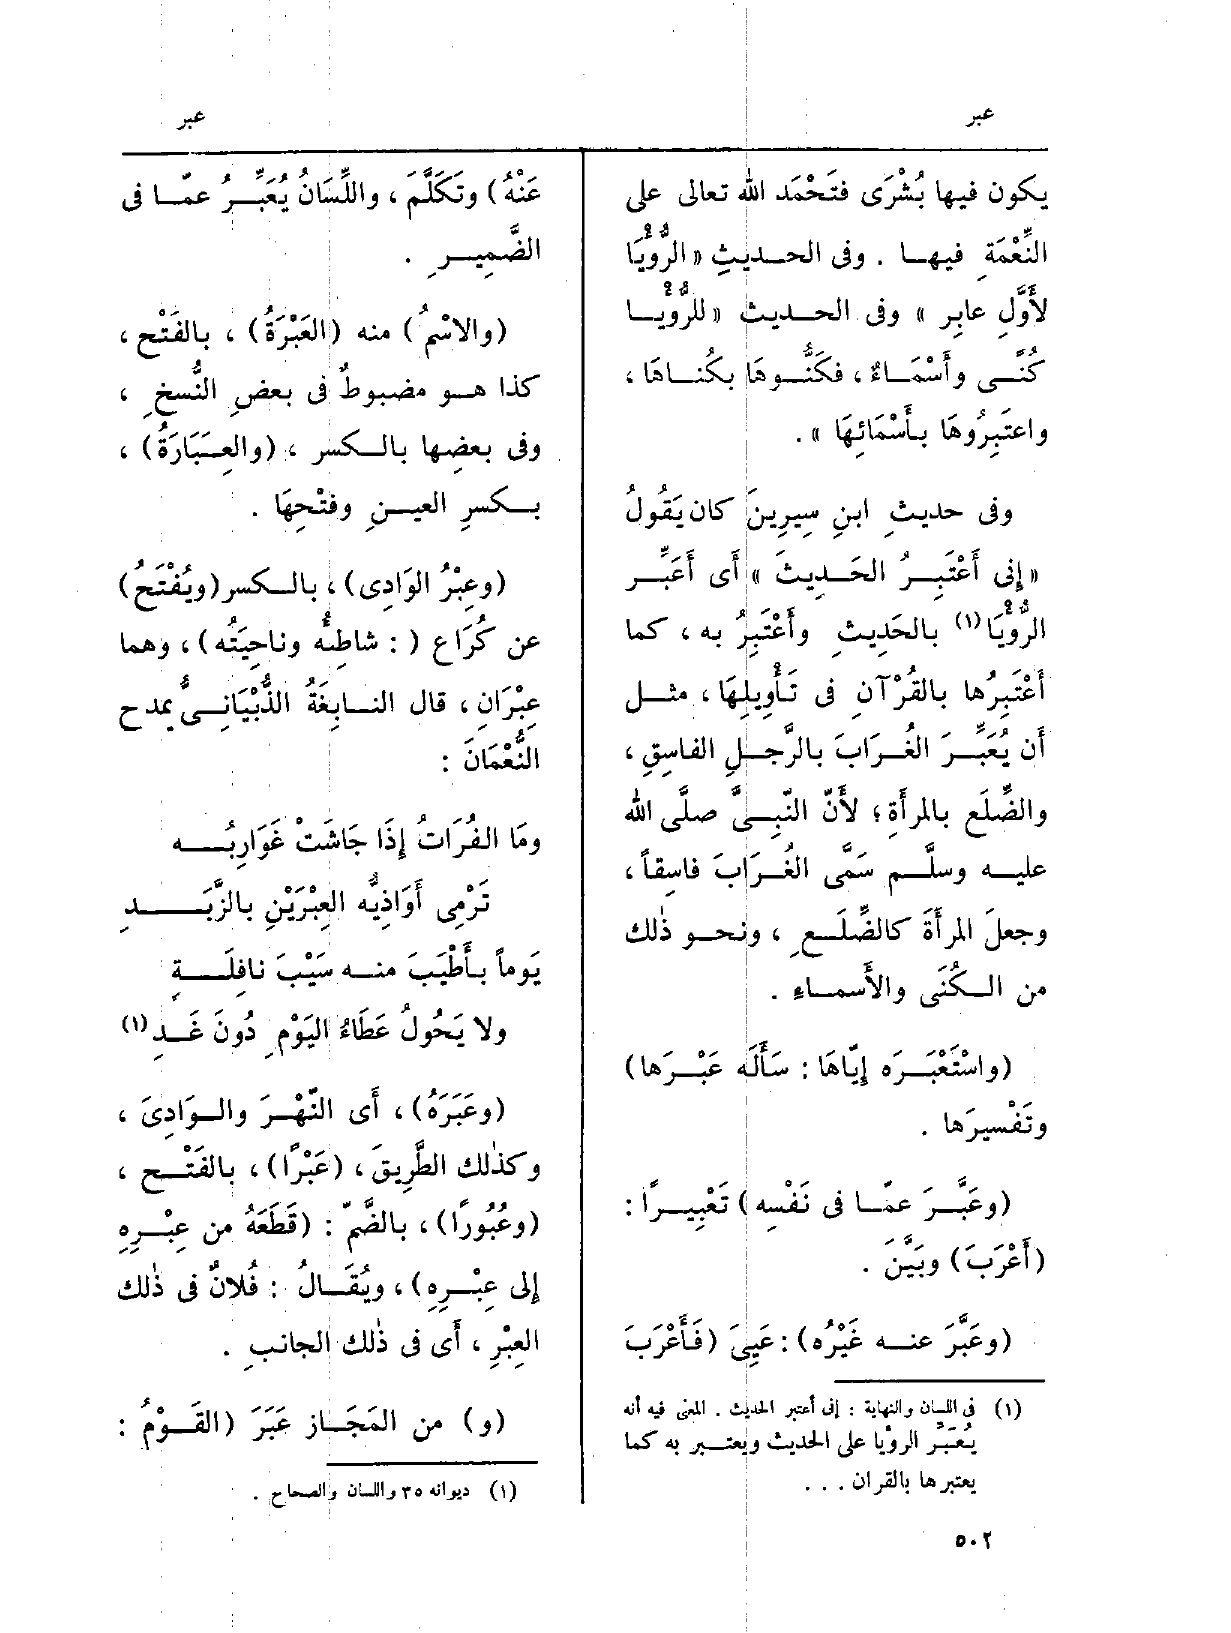 عبر
عبر
يكون فيها بُشْرَى فتَحْمَد الله تعالى على
النِّعْمَةِ فيهـا . وفى الحـديثِ «الرُّؤْيَا
لأَوَّلِ عابِر » وفى الحـديث « للرُّؤْيـا
كُنًى وأَسْمَـاءٌ ، فكَنُّـوهَا بكُنـاهَا ،
واعتَبِرُوهَا بـأَسْمَائِهَا » .
وفى حديثِ ابنِ سِيرِينَ كان يَقُولُ
«إنى أَعْتَبِـرُ الحَـدِيثَ » أَى أُعَبِّـر
الرُّؤْيَا(١) بالحَدِيثِ وأَعْتَبِرُ به ، كما
أَعْتَبِرُها بالقُرْآنِ فى تَأْوِيلِهَا ، مثـل
أن يُعَبِّـرَ الغُـرَابَ بالرَّجـلِ الفاسِقِ ،
والضِّلَع بالمرأَةِ ؛ لأَنّ النّبِـىَّ صلَّى الله
عليـه وسلَّـم سَمَّى الغُـرَابَ فاسِقاً ،
وجعلَ المرأَةَ كالضِّلَـعِ ، ونحـو ذٰلك
من الـكُنَى والأَسمـاءِ .
(واسْتَعْبَـرَه إيّاهَا : سَأَلَه عَبْـرَها)
وتَفْسِيرَها .
(وعَبَّـرَ عمّـا فى نَفْسِه ) تَعْبِيـرًا :
(أَعْرَبَ) وبَيَّنَ .
(وعَبَّرَ عنـه غَيْرُه) : عَيِىَ (فأَعْرَبَ
(١) فى اللسان والنهاية : إنى أعتبر الحديث . المعنى فيه أنه
يُعَبِّر الرؤيا على الحديث ويعتـبر به كما
يعتبرها بالقرآن . . .
٥٠٢
عَنْهُ) وتَكَلَّمَ ، واللِّسَانُ يُعَبِّـرُ عمّـا فى
الضَّمِيـرِ .
(والاسْمُ) منه (العَبْرَةُ) ، بالفَتْح ،
كذا هـو مضبوطٌ فى بعضِ النُّسخِ ،
وفى بعضِها بالـكسر ، (والعِـبَارَةُ) ،
بـكسرِ العيـنِ وفتْحِهَا .
(وعِبْرُ الوَادِى) ، بالـكسر(ويُفْتَحُ)
عن كُرَاع ( : شاطِئُه وناحِيَتُه) ، وهما
عِبْرَانِ ، قال النـابِغَةُ الذُّبْيَانِـىُّ يمدح
النُّعْمَانَ :
ومَا الفُرَاتُ إِذَا جَاشَتْ غَوَارِبُـه
تَرْمِى أَوَاذِيُّه العِبْرَيْنِ بالزَّبَـدِ
يَوماً بـأَطْيَبَ منـه سَيْبَ نافِلَـةٍ
ولا يَحُولُ عَطَاءُ اليَوْمِ دُونَ غَـدِ(١)
(وعَبَرَهُ) ، أَى النَّهْـرَ والـوَادِىَ ،
وكذٰلك الطَّرِيقَ ، (عَبْرًا) ، بالفَتْـح ،
(وعُبُورًا) ، بالضَّمّ : (قَطَعَهُ من عِبْـرِهِ
إلى عِبْـرِه) ، ويُقَـالُ : فُلانٌ فى ذٰلك
العِبْرِ ، أَى فى ذٰلك الجانبِ .
(و) من المَجَـاز عَبَرَ (القَـوْمُ :
(١) ديوانه ٣٥ واللسان والصحاح .